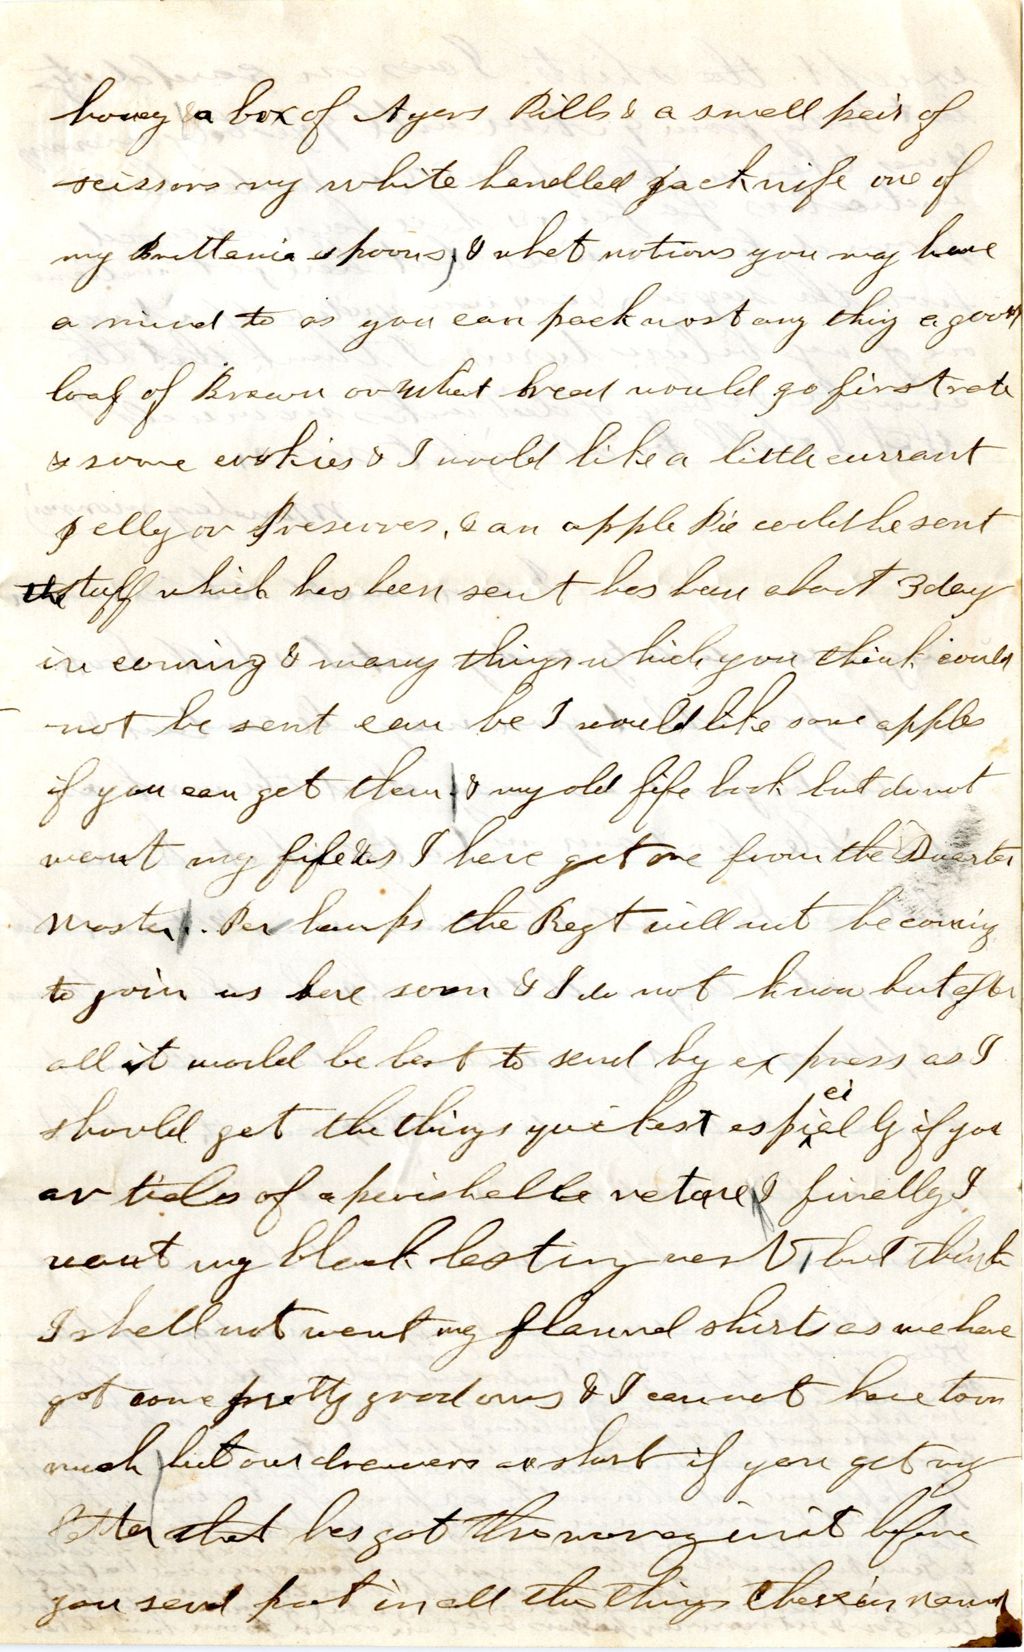 honey & a box of Ayers Pills & a small pair of
scissors my white handled jacknife one of
my Brittania spoons, & what notions you may have
a mind to as you can pack most any thing a good
loaf of Brown or Wheat bread would go first rate
& some cookies & I would like a little currant
jelly or Preserves, & an apple Pie could be sent
the stuff which has been sent has been about 3 day
in coming & many things which you think could
not be sent can be I would like some apples
if you can get them & my old fife book but do not
want my fife as I have got one from the Quarter
Master. Per haps the Regt will not be coming
to join us here soon & I do not know but after
all it would be best to send by express as I
should get the things quickest especially if you
articles of a perishable nature & finally I
want my black lasting vest, but think
I shall not want my flannel shirts as we have
got some pretty good ones & I cannot have to
much but our drawers are short if you get my
letter that has got the money in it before
you send put in all the things therein named